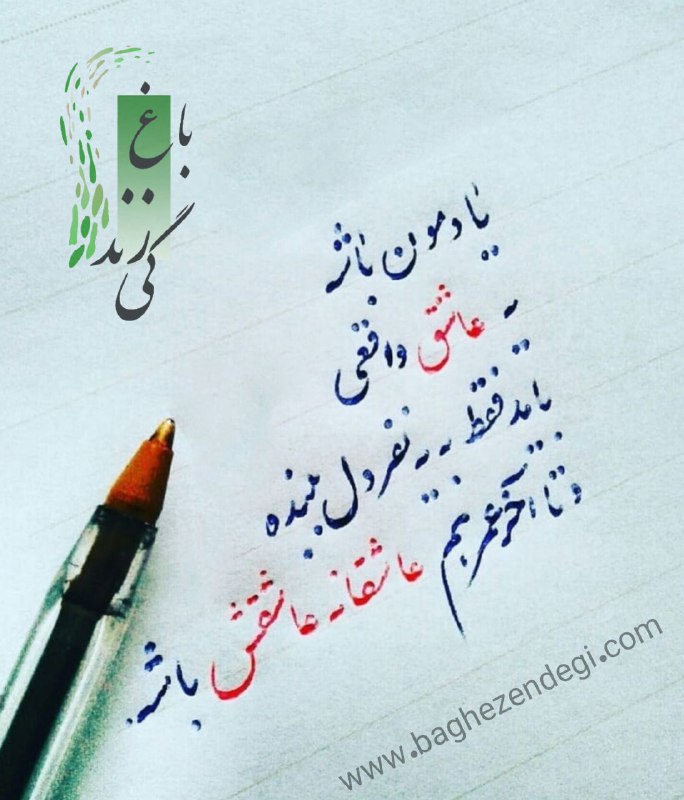 باغ
زندگی
یادمون باشه
یه عاشق واقعی
باید فقط به یه نفر دل ببنده
و تا آخر عمر هم عاشقانه عاشقش باشه.
www.baghezendegi.com